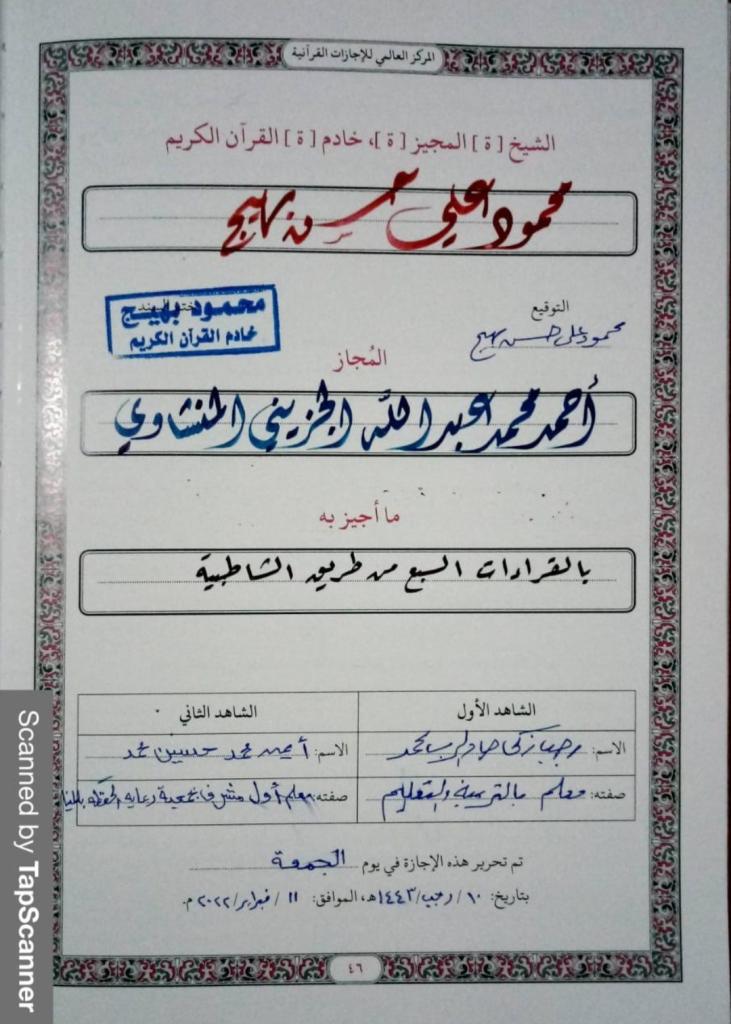 المركز العالمي للإجازات القرآنية
الشيخ [ ة ] المجيز [ ة ]، خادم [ ة ] القرآن الكريم
محمود علي حسن بهيج
التوقيع
محمود علي حسن بهيج
محمود بهيج
خادم القرآن الكريم
المُجاز
أحمد محمد عبد الله الجزيني المنشاوي
ما أجيز به
بالقراءات السبع من طريق الشاطبية
الشاهد الأول
الشاهد الثاني
الاسم: رجب زكي
الاسم: أيمن محمد حسين محمد
صفته: معلم بالتربية والتعليم
صفته: معلم أول مشرف بجمعية رعاية الحفظة
تم تحرير هذه الإجازة في يوم الجمعة
بتاريخ: ١٠ / رجب / ١٤٤٣هـ، الموافق: ١١ / فبراير / ٢٠٢٢م.
٤٦
Scanned by TapScanner